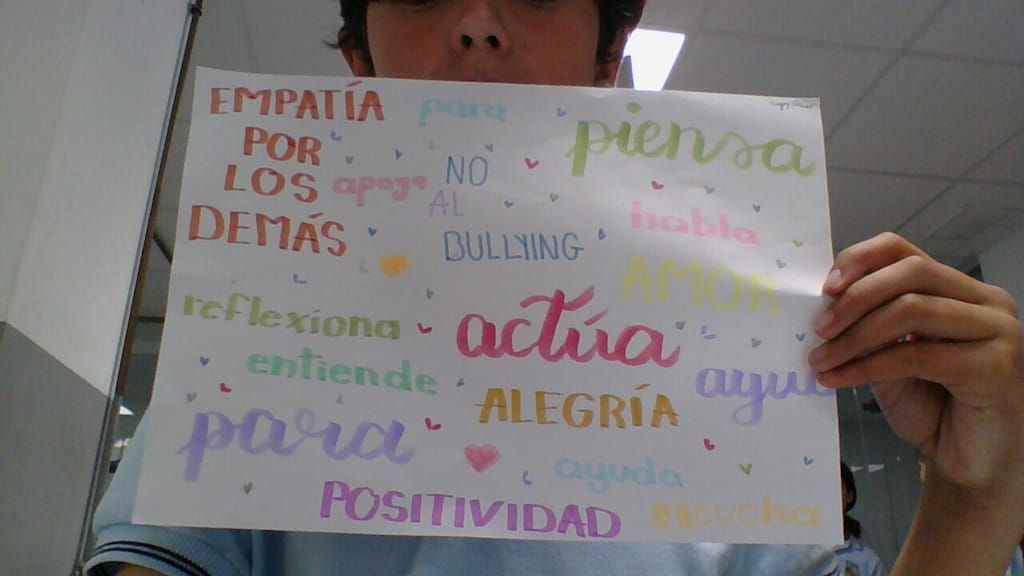 EMPATÍA
POR
LOS
DEMÁS
para
piensa
apoyo
NO
AL
BULLYING
habla
AMOR
reflexiona
actúa
entiende
ALEGRÍA
para
ayuda
POSITIVIDAD
escucha